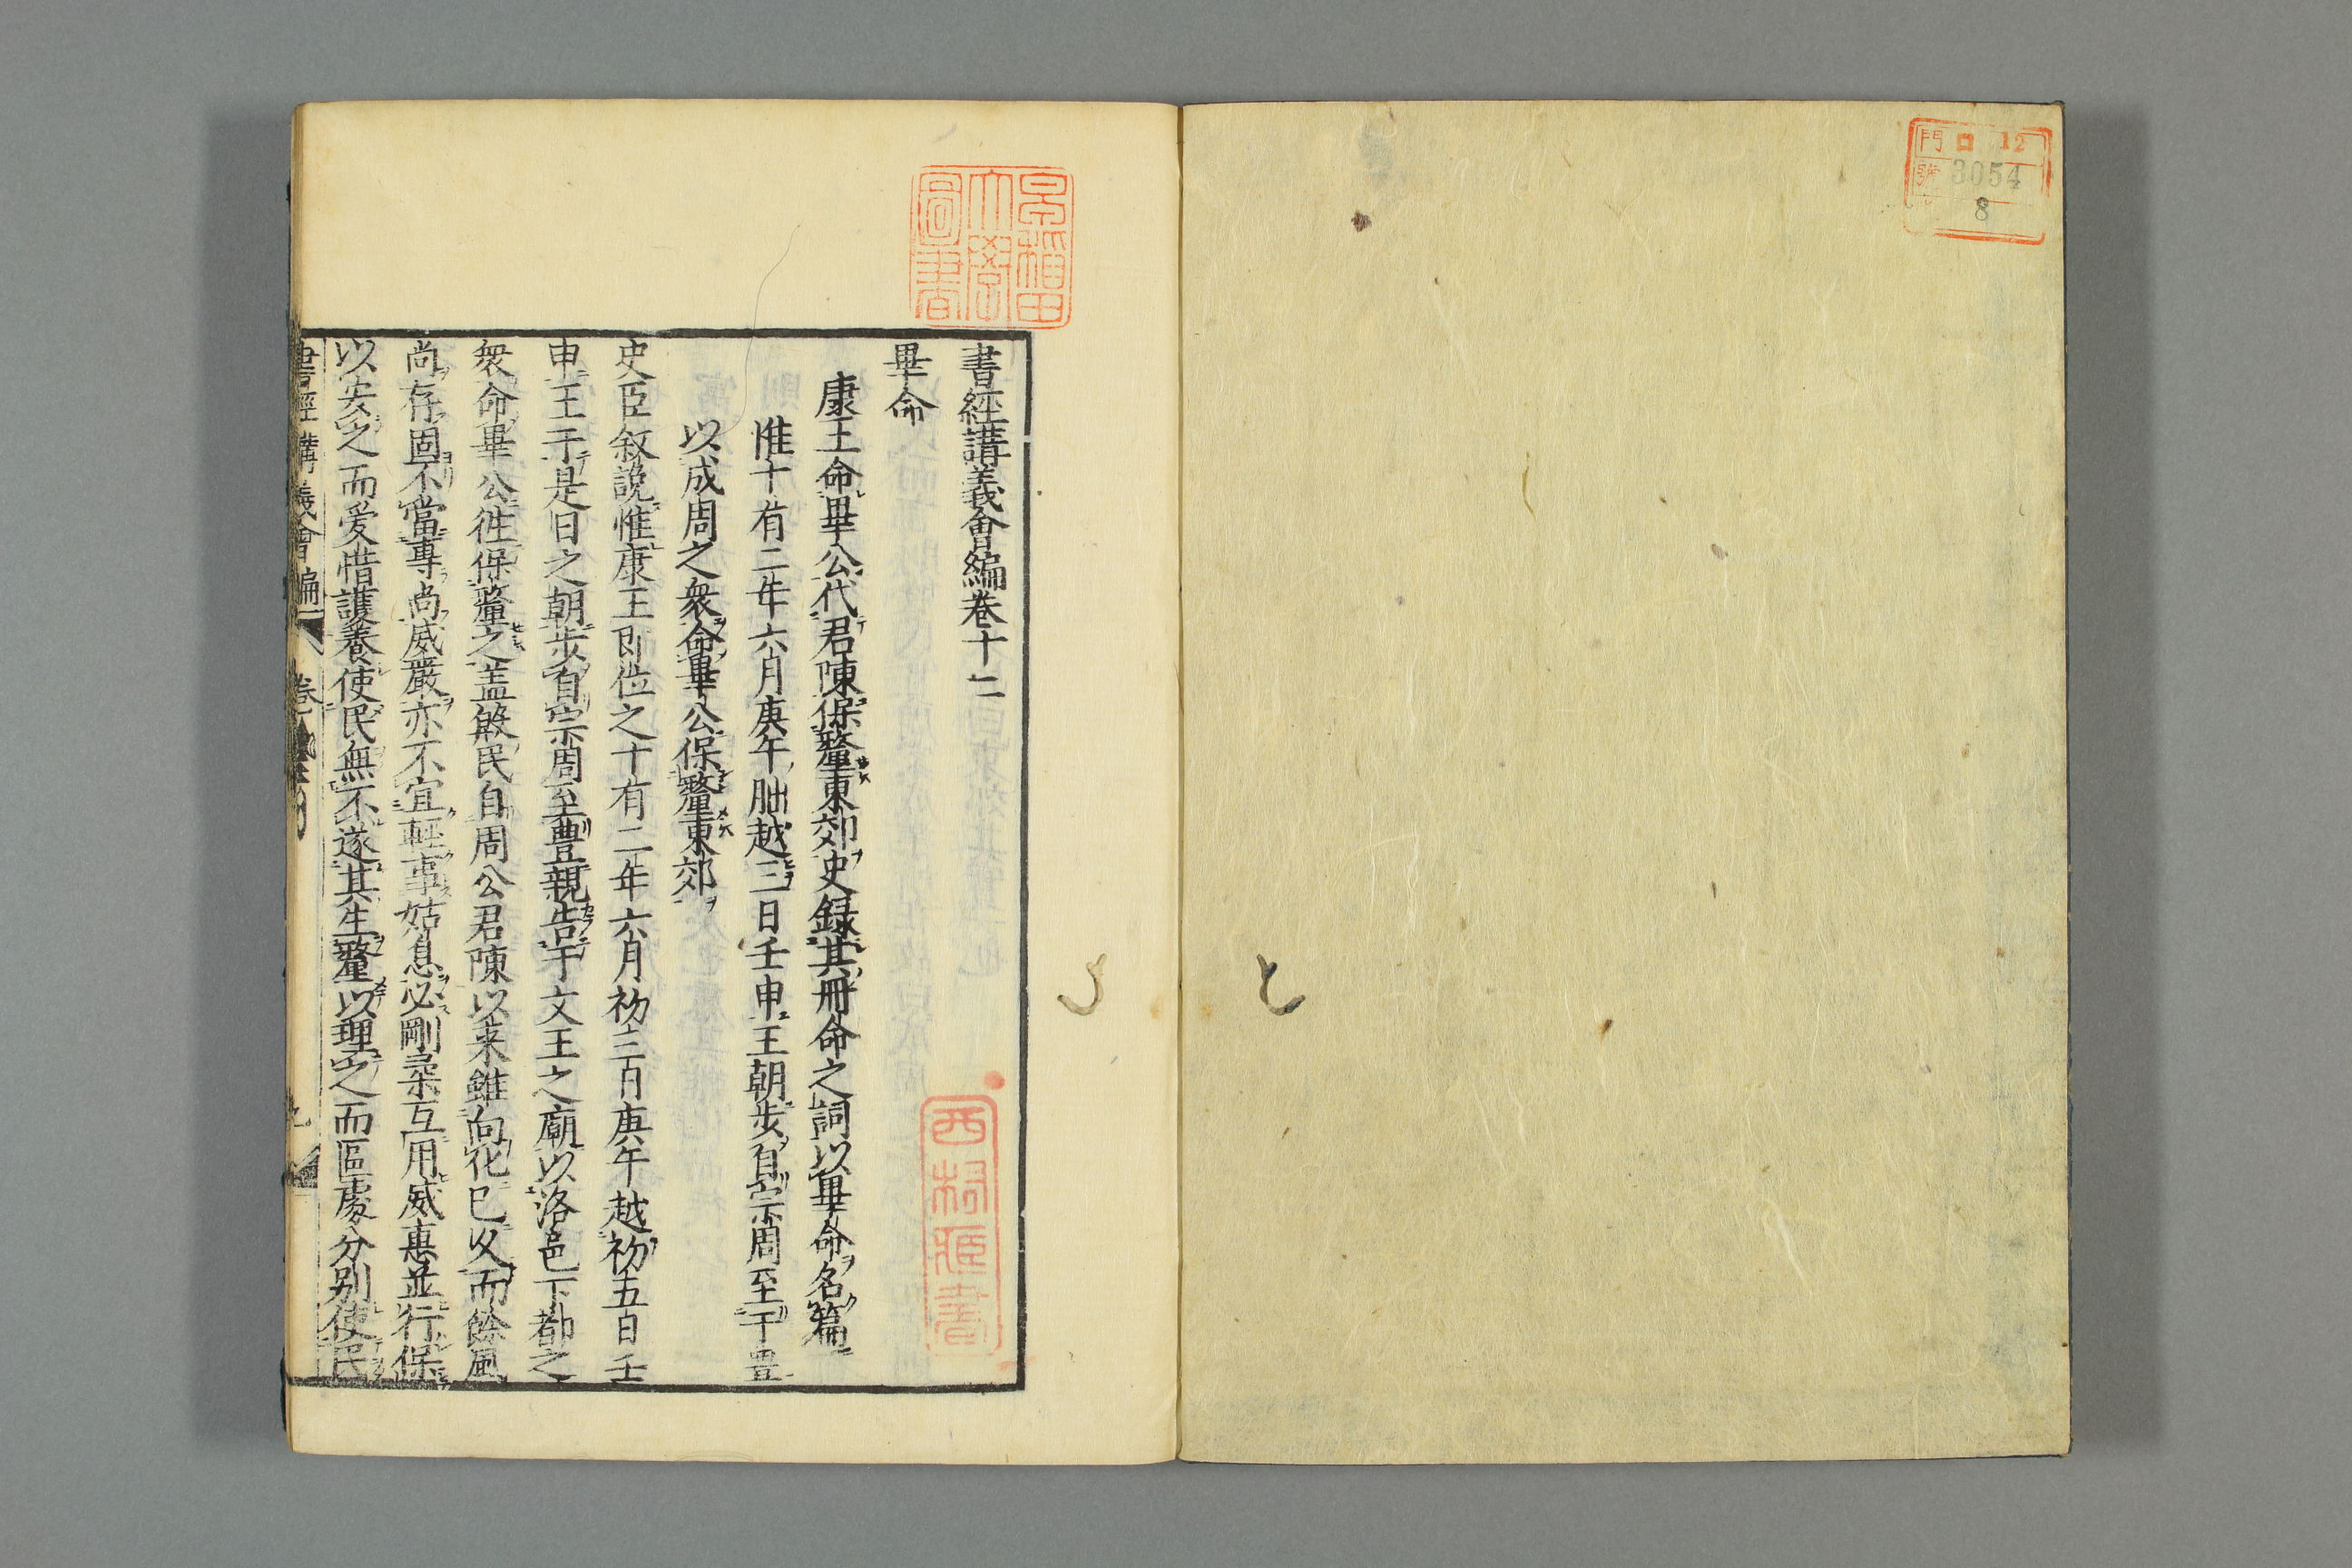 門 ロ 12
號 3054
8
早稲田
大學
圖書
書經講義會編卷十二
畢命
康王命畢公代君陳保釐東郊史録其冊命之詞以畢命名篇
惟十有二年六月庚午朏越三日壬申王朝步自宗周至于豊
以成周之衆命畢公保釐東郊
史臣敘說惟康王即位之十有二年六月初三日庚午越初五日壬
申王于是日之朝步自宗周至豊親告于文王之廟以洛邑下都之
衆命畢公徃保釐之盖殷民自周公君陳以来雖向化已久而餘風
尚存固不當專尚威嚴亦不宜輕事姑息必剛柔互用威惠並行保
以安之而爱惜護養使民無不遂其生釐以理之而區處分别使民
書經講義會編 卷
西 書